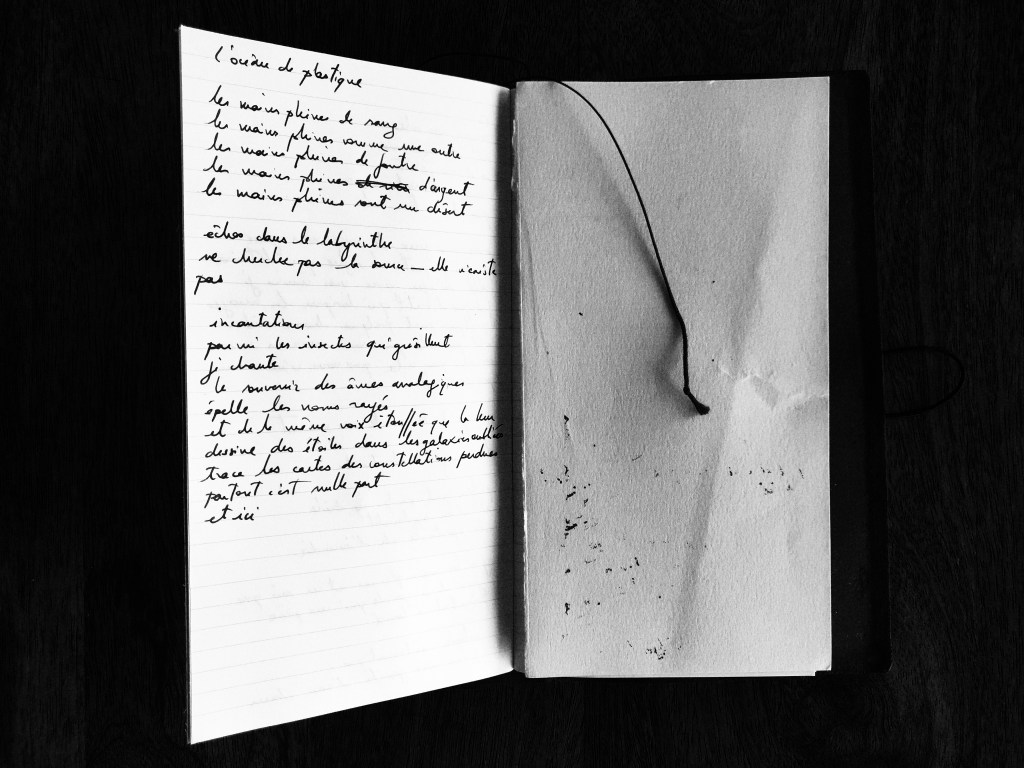 l'océan de plastique
les mains pleines de sang
les mains pleines comme une outre
les mains pleines de foutre
les mains pleines d'argent
les mains pleines sont un désert
échos dans le labyrinthe
ne cherchez pas la source – elle n'existe
pas
incantations
parmi les insectes qui grésillent
je chante
le souvenir des âmes analogiques
épelle les noms rayés
et de la même voix étouffée que le
dessine des étoiles dans les galaxies oubliées
trace les cartes des constellations perdues
partout c'est nulle part
et ici